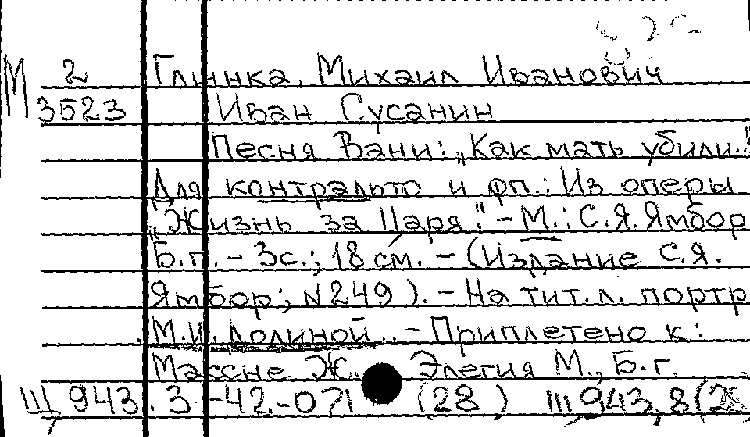 М 2 Глинка, Михаил Иванович
3523 Иван Сусанин
Песня Вани: „Как мать убили.."
Для контральто и фп.: Из оперы
„Жизнь за Царя". - М.: С.Я. Ямбор
Б.г. - 3с.; 18 см. - (Издание С.Я.
Ямбор; N249). - На тит. л. портр
М.И. Долиной.. - Приплетено к:
Массне Ж.. Элегия М., Б.г.
Ш 943.3-42.-071 (28) Ш 943,8